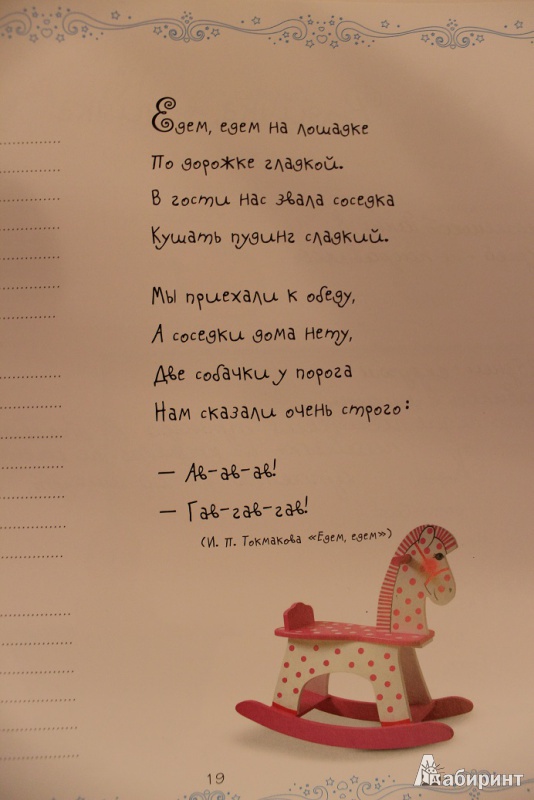 Едем, едем на лошадке
По дорожке гладкой.
В гости нас звала соседка
Кушать пудинг сладкий.
Мы приехали к обеду,
А соседки дома нету,
Две собачки у порога
Нам сказали очень строго:
— Ав-ав-ав!
— Гав-гав-гав!
(И. П. Токмакова «Едем, едем»)
19
Лабиринт